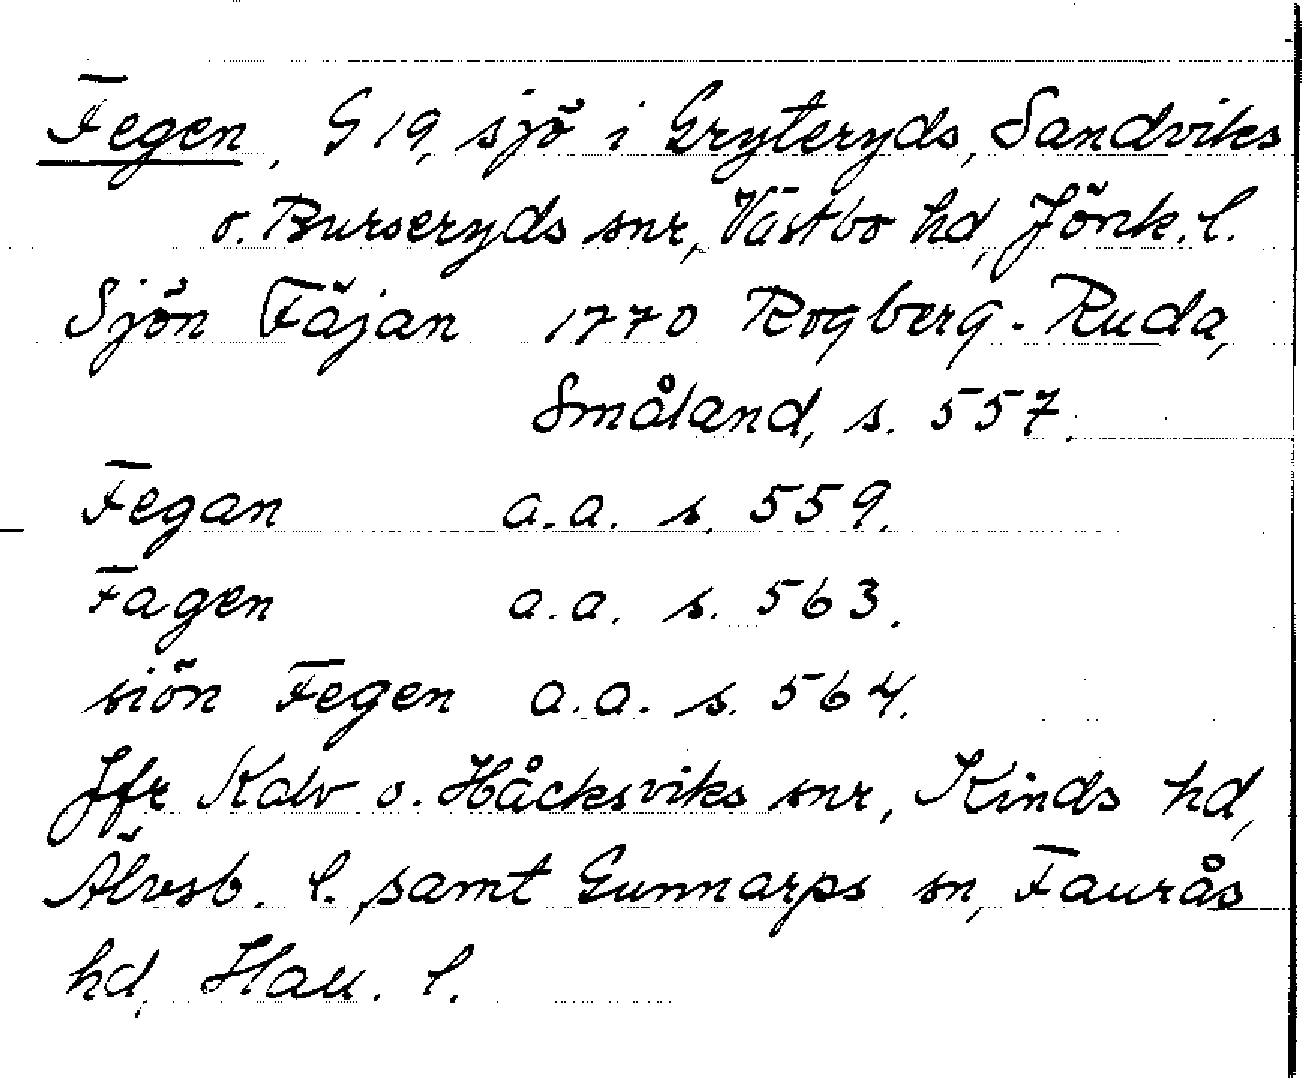 Fegen, G 19, sjö i Gryteryds, Sandviks
o. Burseryds snr, Västbo hd, Jönk. l.
Sjön Fäjan 1770 Rogberg-Ruda,
Småland, s. 557.
Fegan a.a. s. 559.
Fagen a.a. s. 563.
siön Fegen a.a. s. 564.
Jfr Kalv o. Håcksviks snr, Kinds hd,
Älvsb. l., samt Gunnarps sn, Faurås
hd, Hall. l.